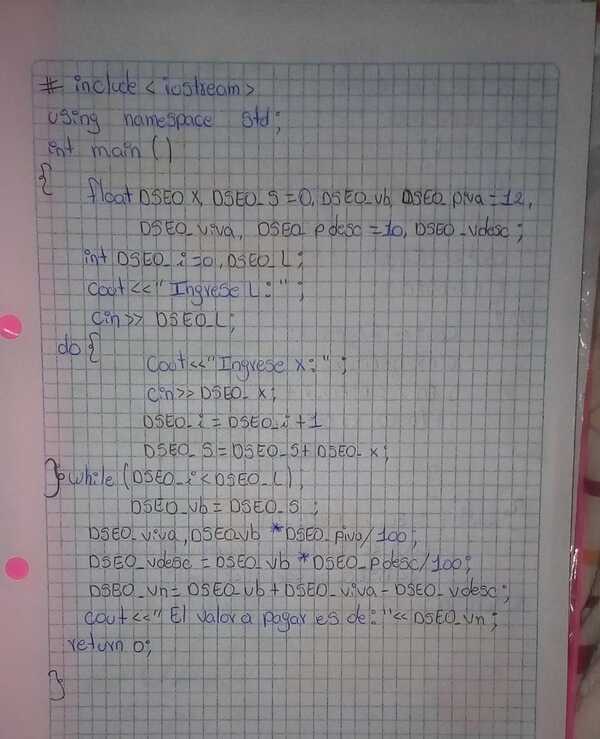 # include < iostream >
using namespace std;
int main ()
{
float DSEO X, DSEO_S = 0, DSEO_vb, DSEO_piva = 12,
DSEO_viva, DSEO_pdesc = 10, DSEO_vdesc ;
int DSEO_i = 0 , DSEO_L ;
cout << "Ingrese L : " ;
cin >> DSEO_L;
do {
cout << "Ingrese x : " ;
cin >> DSEO_x;
DSEO_i = DSEO_i + 1
DSEO_S = DSEO_S + DSEO_x;
} while (DSEO_i < DSEO_L),
DSEO_vb = DSEO_S ;
DSEO_viva , DSEO_vb * DSEO_piva/100;
DSEO_vdesc = DSEO_vb * DSEO_pdesc/100;
DSEO_vn = DSEO_vb + DSEO_viva - DSEO_vdesc;
cout << " El valor a pagar es de : " << DSEO_vn ;
return 0;
}